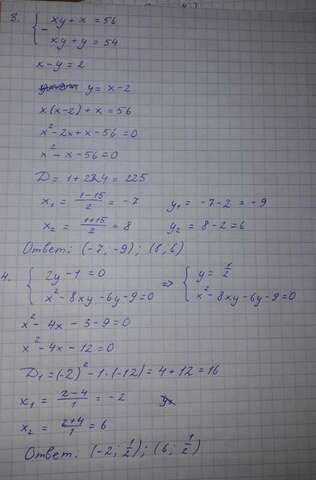 3. { xy + x = 56
- { xy + y = 54
x - y = 2
y = x - 2
x(x-2) + x = 56
x² - 2x + x - 56 = 0
x² - x - 56 = 0
D = 1 + 224 = 225
x₁ = (1-15)/2 = -7 y₁ = -7 - 2 = -9
x₂ = (1+15)/2 = 8 y₂ = 8 - 2 = 6
Ответ: (-7, -9); (8, 6)
4. { 2y - 1 = 0 => { y = 1/2
{ x² - 8xy - 6y - 9 = 0 { x² - 8xy - 6y - 9 = 0
x² - 4x - 3 - 9 = 0
x² - 4x - 12 = 0
D₁ = (-2)² - 1·(-12) = 4 + 12 = 16
x₁ = (2-4)/1 = -2
x₂ = (2+4)/1 = 6
Ответ: (-2, 1/2); (6, 1/2)